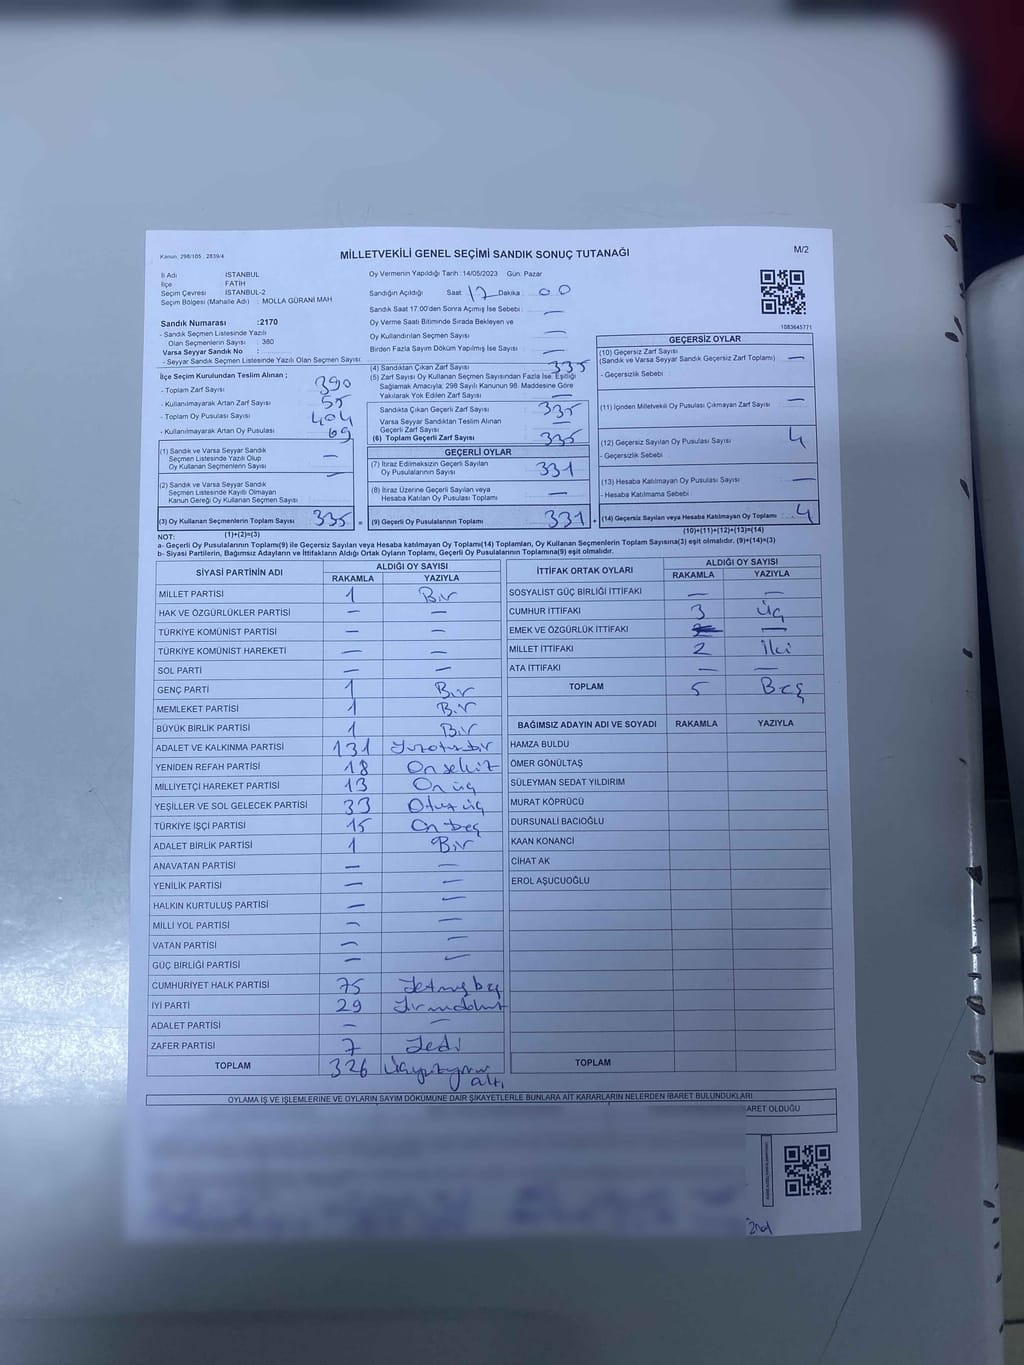 Kanun: 298/105 : 2839/4
MİLLETVEKİLİ GENEL SEÇİMİ SANDIK SONUÇ TUTANAĞI
M/2
İl Adı İSTANBUL
İlçe FATİH
Seçim Çevresi İSTANBUL-2
Seçim Bölgesi (Mahalle Adı) : MOLLA GÜRANİ MAH
Sandık Numarası :2170
- Sandık Seçmen Listesinde Yazılı
Olan Seçmenlerin Sayısı : 380
Varsa Seyyar Sandık No :
- Seyyar Sandık Seçmen Listesinde Yazılı Olan Seçmen Sayısı:
Oy Vermenin Yapıldığı Tarih : 14/05/2023 Gün: Pazar
Sandığın Açıldığı Saat 17 Dakika : 00
Sandık Saat 17.00'den Sonra Açımış İse Sebebi : —
Oy Verme Saati Bitiminde Sırada Bekleyen ve
Oy Kullandırılan Seçmen Sayısı —
Birden Fazla Sayım Döküm Yapılmış İse Sayısı —
1083645771
İlçe Seçim Kurulundan Teslim Alınan ;
- Toplam Zarf Sayısı 390
- Kullanılmayarak Artan Zarf Sayısı 55
- Toplam Oy Pusulası Sayısı 404
- Kullanılmayarak Artan Oy Pusulası 69
(1) Sandık ve Varsa Seyyar Sandık
Seçmen Listesinde Yazılı Olup
Oy Kullanan Seçmenlerin Sayısı —
(2) Sandık ve Varsa Seyyar Sandık
Seçmen Listesinde Kayıtlı Olmayan
Kanun Gereği Oy Kullanan Seçmen Sayısı —
(3) Oy Kullanan Seçmenlerin Toplam Sayısı 335 =
(1)+(2)=(3)
(4) Sandıktan Çıkan Zarf Sayısı 335
(5) Zarf Sayısı Oy Kullanan Seçmen Sayısından Fazla İse, Eşitliği
Sağlamak Amacıyla; 298 Sayılı Kanunun 98. Maddesine Göre
Yakılarak Yok Edilen Zarf Sayısı —
Sandıkta Çıkan Geçerli Zarf Sayısı 335
Varsa Seyyar Sandıktan Teslim Alınan
Geçerli Zarf Sayısı —
(6) Toplam Geçerli Zarf Sayısı 335
GEÇERLİ OYLAR
(7) İtiraz Edilmeksizin Geçerli Sayılan
Oy Pusulalarının Sayısı 331
(8) İtiraz Üzerine Geçerli Sayılan veya
Hesaba Katılan Oy Pusulası Toplamı —
(9) Geçerli Oy Pusulalarının Toplamı 331 +
GEÇERSİZ OYLAR
(10) Geçersiz Zarf Sayısı
(Sandık ve Varsa Seyyar Sandık Geçersiz Zarf Toplamı) —
- Geçersizlik Sebebi :
(11) İçinden Milletvekili Oy Pusulası Çıkmayan Zarf Sayısı —
(12) Geçersiz Sayılan Oy Pusulası Sayısı 4
- Geçersizlik Sebebi
(13) Hesaba Katılmayan Oy Pusulası Sayısı —
- Hesaba Katılmama Sebebi
(14) Geçersiz Sayılan veya Hesaba Katılmayan Oy Toplamı 4
(10)+(11)+(12)+(13)=(14)
NOT:
a- Geçerli Oy Pusulalarının Toplamı(9) ile Geçersiz Sayılan veya Hesaba katılmayan Oy Toplamı(14) Toplamları, Oy Kullanan Seçmenlerin Toplam Sayısına(3) eşit olmalıdır. (9)+(14)=(3)
b- Siyasi Partilerin, Bağımsız Adayların ve İttifakların Aldığı Ortak Oyların Toplamı, Geçerli Oy Pusulalarının Toplamına(9) eşit olmalıdır.
SİYASİ PARTİNİN ADI ALDIĞI OY SAYISI
RAKAMLA YAZIYLA
MİLLET PARTİSİ 1 Bir
HAK VE ÖZGÜRLÜKLER PARTİSİ — —
TÜRKİYE KOMÜNİST PARTİSİ — —
TÜRKİYE KOMÜNİST HAREKETİ — —
SOL PARTİ — —
GENÇ PARTİ 1 Bir
MEMLEKET PARTİSİ 1 Bir
BÜYÜK BİRLİK PARTİSİ 1 Bir
ADALET VE KALKINMA PARTİSİ 131 Yüzotuzbir
YENİDEN REFAH PARTİSİ 18 On sekiz
MİLLİYETÇİ HAREKET PARTİSİ 13 On üç
YEŞİLLER VE SOL GELECEK PARTİSİ 33 Otuz üç
TÜRKİYE İŞÇİ PARTİSİ 15 On beş
ADALET BİRLİK PARTİSİ 1 Bir
ANAVATAN PARTİSİ — —
YENİLİK PARTİSİ — —
HALKIN KURTULUŞ PARTİSİ — —
MİLLİ YOL PARTİSİ — —
VATAN PARTİSİ — —
GÜÇ BİRLİĞİ PARTİSİ — —
CUMHURİYET HALK PARTİSİ 75 Yetmiş beş
İYİ PARTİ 29 Yirmidokuz
ADALET PARTİSİ — —
ZAFER PARTİSİ 7 Yedi
TOPLAM 326 Üçyüzyirmi altı
İTTİFAK ORTAK OYLARI ALDIĞI OY SAYISI
RAKAMLA YAZIYLA
SOSYALİST GÜÇ BİRLİĞİ İTTİFAKI — —
CUMHUR İTTİFAKI 3 Üç
EMEK VE ÖZGÜRLÜK İTTİFAKI —
MİLLET İTTİFAKI 2 İki
ATA İTTİFAKI — —
TOPLAM 5 Beş
BAĞIMSIZ ADAYIN ADI VE SOYADI RAKAMLA YAZIYLA
HAMZA BULDU
ÖMER GÖNÜLTAŞ
SÜLEYMAN SEDAT YILDIRIM
MURAT KÖPRÜCÜ
DURSUNALİ BACIOĞLU
KAAN KONANCİ
CİHAT AK
EROL AŞUCUOĞLU
TOPLAM
OYLAMA İŞ VE İŞLEMLERİNE VE OYLARIN SAYIM DÖKÜMÜNE DAİR ŞİKAYETLERLE BUNLARA AİT KARARLARIN NELERDEN İBARET BULUNDUKLARI
BARET OLDUĞU